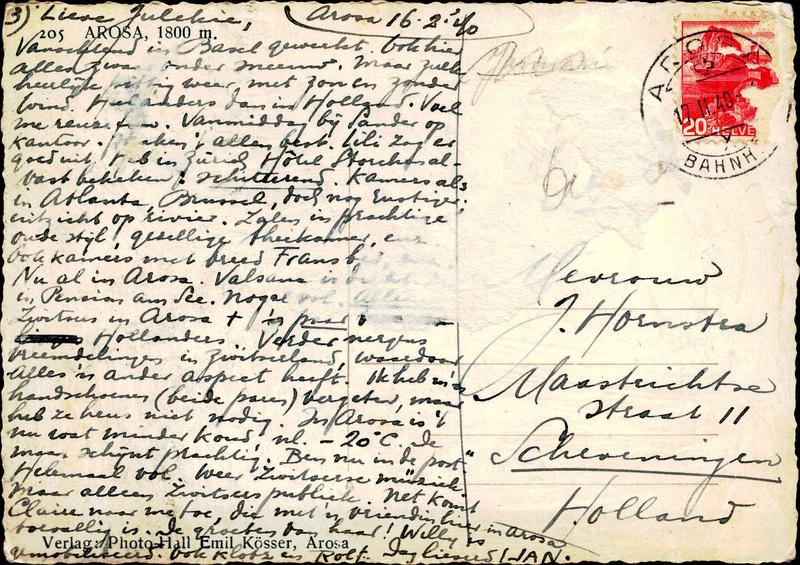 3) Lieve Julekie, Arosa 16.2.40
205 AROSA, 1800 m.
Vanochtend in Basel gewerkt. Ook hier
alles zwaar onder sneeuw. Maar zulk
heerlijk pittig weer, met zon en zonder
wind. Heel anders dan in Holland. Voel
me reuze. Vanmiddag bij Sander op
kantoor. 't alles best. Lili zag er
goed uit. Heb in Zürich Hôtel Storchen al-
vast bekeken: schitterend. Kamers als
in Atlanta, Brussel, doch nog rustiger:
uitzicht op rivier. Zalen in prachtige
oude stijl, gezellige theekamer, enz.
Ook kamers met breed Fransch
Nu al in Arosa. Valsana is
in Pension am See. Nogal vol. Alleen
Zwitsers in Arosa + 'n paar
Hollanders. Verder nergens
vreemdelingen in Zwitserland, waardoor
alles 'n ander aspect heeft. Ik heb m'n
handschoenen (beide paren) vergeten, maar
heb ze heus niet nodig. In Arosa is 't
nu wat minder koud, nl. – 20°C. De
maan schijnt prachtig. Ben nu in de "post"
Helemaal vol. Weer Zwitserse muziek.
Maar alleen Zwitsers publiek. Net komt
Claire naar me toe, die met 'n vriendin hier in Arosa
toevallig is. Je groeten van haar! Willy is
gemobiliseerd. Ook Klotz en Rolf. Dag lieverd! JAN.
Verlag: Photo-Hall Emil Kösser, Arosa
AROSA
17.II.40
BAHNH
20 HELVE
Mevrouw
J. Hornstra
Maastrichtse
straat 11
Scheveningen
Holland